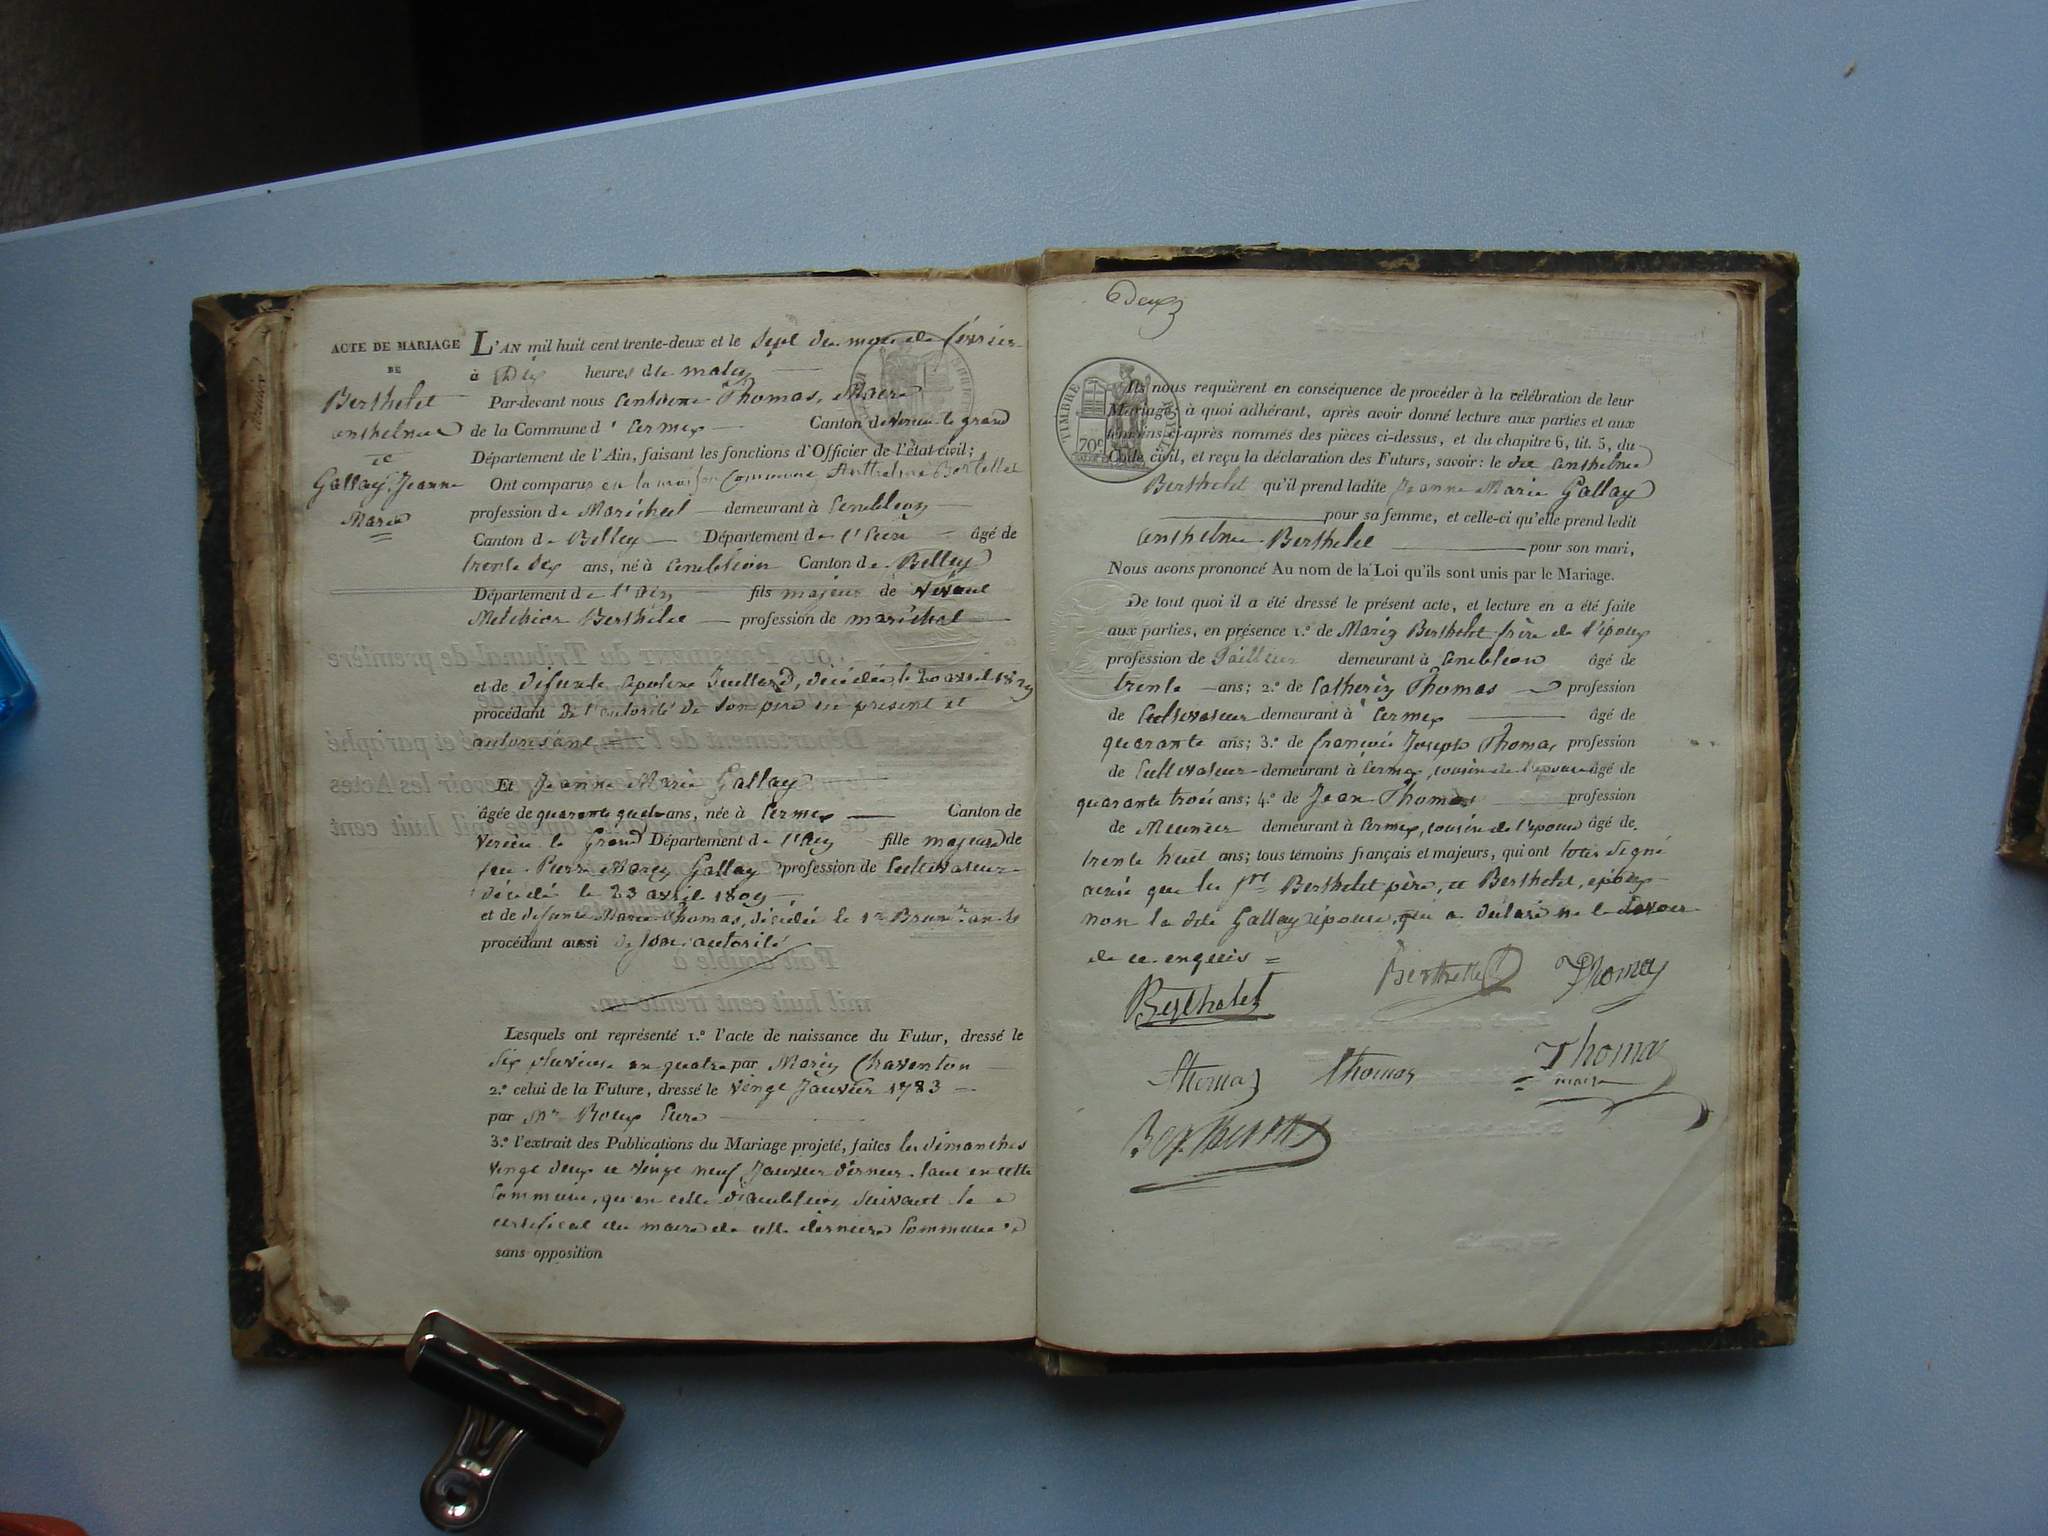 ACTE DE MARIAGE
DE
Berthelet
anthelme
et
Gallay Jeanne
Marie
L'AN mil huit cent trente-deux et le Sept du mois de février
à Dix heures du matin
Par-devant nous anthelme Thomas, Maire
de la Commune d' Cermex Canton de virieu le grand
Département de l'Ain, faisant les fonctions d'Officier de l'état civil;
Ont comparus en la maison Commune Anthelme Bertellet
profession de Maréchal demeurant à ambléon
Canton de Belley Département de l'Ain âgé de
trente six ans, né à ambléon Canton de Belley
Département de l'Ain fils majeur de vivant
Melchior Berthelet profession de maréchal
et de defunte apoline Juillard, décédée le 20 avril 1829
procédant de l'autorité de son père ici present et
autorisant
Et Jeanne Marie Gallay
âgée de quarante quatre ans, née à Cermex Canton de
Virieu le Grand Département de l'Ain fille majeure de
feu Pierre Marin Gallay profession de Cultivateur
décédé le 23 avril 1809
et de defunte Marie Thomas, décédée le 1er Brum.re an
procédant aussi de son autorité
Lesquels ont représenté 1.º l'acte de naissance du Futur, dressé le
six pluviose an quatre par Marin Charenton
2.º celui de la Future, dressé le vingt Janvier 1783
par Mr Roux Curé
3.º l'extrait des Publications du Mariage projeté, faites les dimanches
vingt deux et vingt neuf Janvier dernier, tant en cette
Commune, qu'en celle d'ambléon, suivant le
certificat du maire de cette derniere Commune
sans opposition
Deux
TIMBRE ROYAL
70c
Ils nous requièrent en conséquence de procéder à la célébration de leur
Mariage, à quoi adhérant, après avoir donné lecture aux parties et aux
témoins ci-après nommés des pièces ci-dessus, et du chapitre 6, tit. 5, du
Code civil, et reçu la déclaration des Futurs, savoir: le dit anthelme
Berthelet qu'il prend ladite Jeanne Marie Gallay
pour sa femme, et celle-ci qu'elle prend ledit
anthelme Berthelet pour son mari,
Nous avons prononcé Au nom de la Loi qu'ils sont unis par le Mariage.
De tout quoi il a été dressé le présent acte, et lecture en a été faite
aux parties, en présence 1.º de Marin Berthelet frère de l'époux
profession de Tailleur demeurant à ambléon âgé de
trente ans; 2.º de Catherin Thomas profession
de Cultivateur demeurant à Cermex âgé de
quarante ans; 3.º de françois Joseph Thomas profession
de Cultivateur demeurant à Cermex, cousin de l'épouse âgé de
quarante trois ans; 4.º de Jean Thomas profession
de Meunier demeurant à Cermex, cousin de l'épouse âgé de
trente huit ans; tous témoins français et majeurs, qui ont tous signé
ainsi que les Berthelet père, et Berthelet, époux
non la dite Gallay épouse, qui a déclaré ne le savoir
de ce enquis
Berthelet Berthellet Thomas
Thomas Thomas Thomas
maire